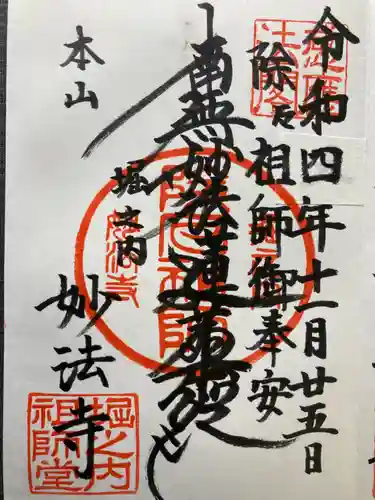 令和四年十一月廿五日
除厄祖師御奉安
南無妙法蓮華経
堀之内
本山
妙法寺
堀之内
祖師堂